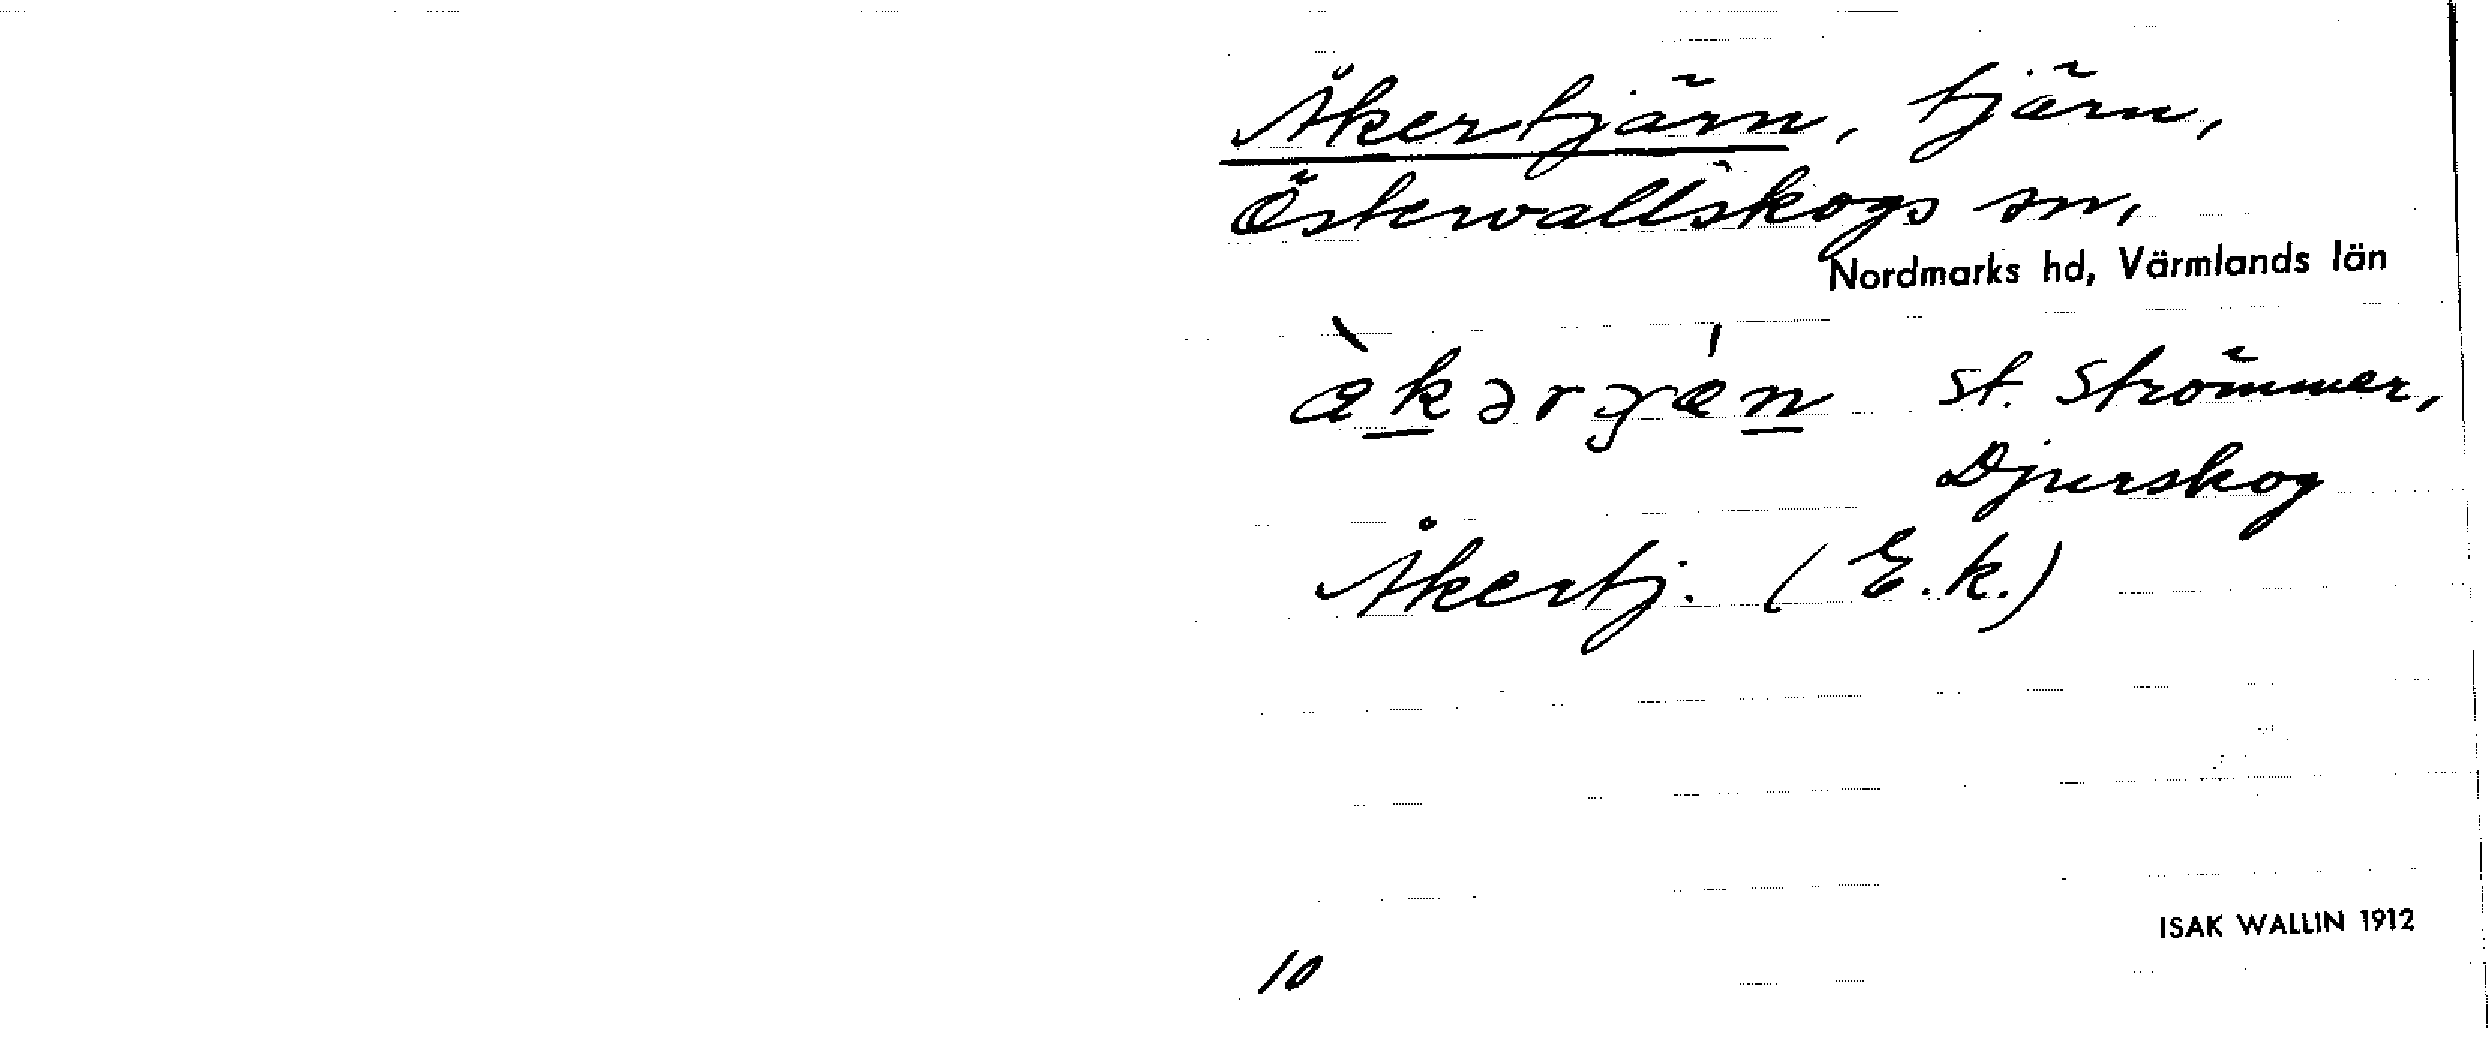 Åkertjärn, tjärn,
Östervallskogs sn,
Nordmarks hd, Värmlands län
St. Strömmer,
Djurskog
Åkertj. (E.k.)
ISAK WALLIN 1912
10